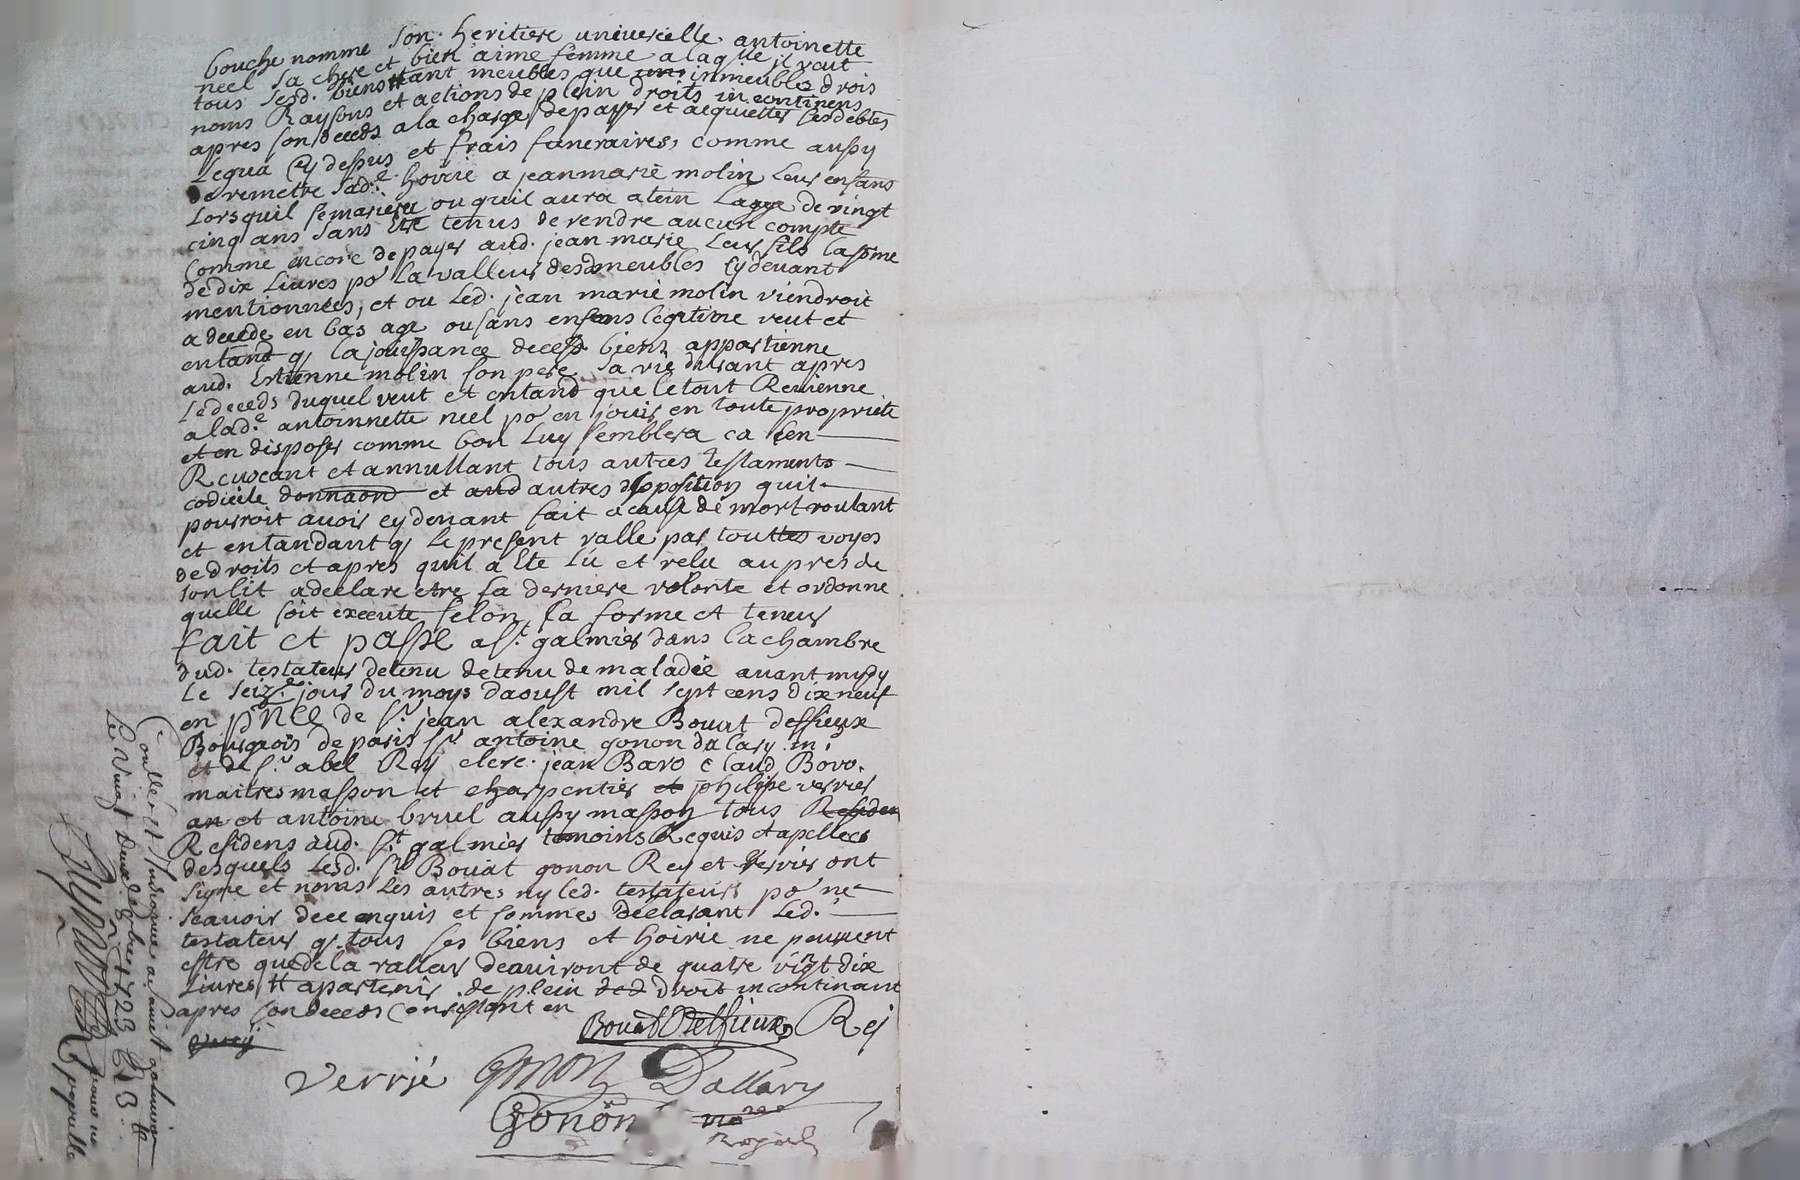 bouche nomme son heritiere universelle antoinette
neel sa chere et bien aime femme a laqle il veut
tous sesd. biens tant meubles que inmeubles drois
noms Raysons et actions de plein droits in continens
apres son deceds a la charge de payer et acquietter ses debtes
Legua cy dessus et frais funeraires, comme aussy
de remettre sad.e hoirie a jeanmarie molin Leur enfans
Lorsquil se mariera ou quil aura atein Lagge de vingt
cinq ans sans Etre tenus de rendre aucun compte
Comme encore de payer aud. jean marie Leur fils la some
de dix Livres po La valleur desd meubles cy devant
mentionnées, et ou Led. jean marie molin viendroit
a decede en bas age ou sans enfans legitime veut et
entand q La jouissance de ces biens appartienne
aud. Estienne molin son pere sa vie durant apres
Le deceds duquel veut et entand que le tout Revienne
a lad.e antoinnette neel po en jouir en toute propriete
et en disposer comme bon Luy semblera ca
Revocant et annullant tous autres testaments
codicile donnaon et autres disposition quil
pourroit avoir cy devant fait a cause de mort voulant
et entandant q Le present valle par touttes voyes
de droits et apres quil a Ete Lû et relu aupres de
son lit a declare etre sa derniere volonte et ordonne
quelle soit execute selon sa forme et teneur
fait et passe a St. galmier dans La chambre
dud. testateur detenu detenu de maladie avant mydy
Le seize jour du moys daoust mil sept cens dix neuf
en pnce de Sr. jean alexandre Bouat deffieux
Bourgeois de paris Sr antoine gonon
et de Sr. abel Rey clerc. jean Baro Claud Bovo.
maitres masson et charpentier et philipe verrier
et antoine bruel aussy masson tous Residen
Residens aud. St. galmier temoins Requis et apelleés
desquels Lesd. Srs Bouat gonon Rey et verrier ont
signe et non Les autres ny Led. testateur po ne
scavoir de ce enquis et sommes declarant Led.
testateur q tous ses biens et hoirie ne peuvent
estre que de la valleur deaviront de quatre vingt dix
Livres tt apartenir de plein ded droit in continant
apres son deceds
Bouat Deffieux Rej
Verrié Gonon Dallary
Gonon nore
Controllé et Insinué a Saint galmier